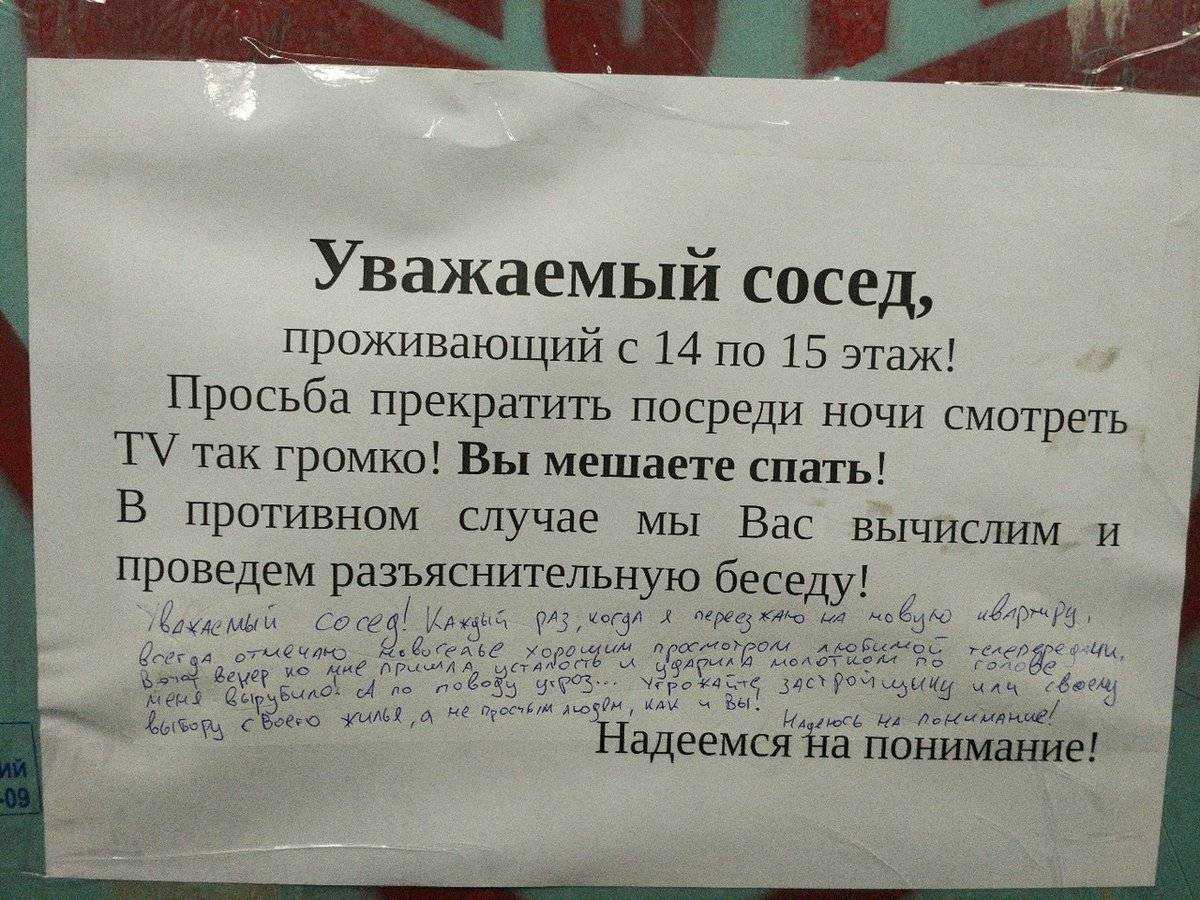 Уважаемый сосед,
проживающий с 14 по 15 этаж!
Просьба прекратить посреди ночи смотреть
TV так громко! Вы мешаете спать!
В противном случае мы Вас вычислим и
проведем разъяснительную беседу!
Уважаемый сосед! Каждый раз, когда я переезжаю на новую квартиру,
всегда отмечаю новоселье хорошим просмотром любимой телепередачи.
В этот вечер ко мне пришла усталость и ударила молотком по голове
меня вырубило. А по поводу угроз... Угрожайте застройщику или своему
выбору своего жилья, а не простым людям, как и Вы! Надеюсь на понимание!
Надеемся на понимание!
ий
-09